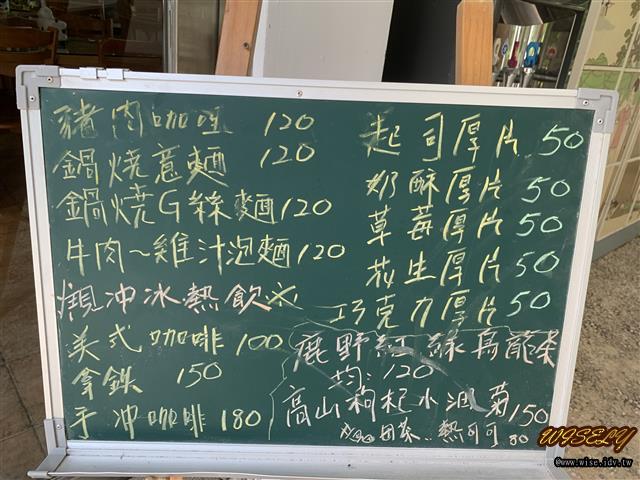 豬肉咖哩 120
鍋燒意麵 120
鍋燒G絲麵 120
牛肉~雞汁泡麵 120
現冲冰熱飲
美式咖啡 100
拿鐵 150
手冲咖啡 180
起司厚片 50
奶酥厚片 50
草莓厚片 50
花生厚片 50
巧克力厚片 50
鹿野紅 綠烏龍茶
均:120
高山枸杞小油菊 150
熱可可 80
WISELY
@www.wise.idv.tw